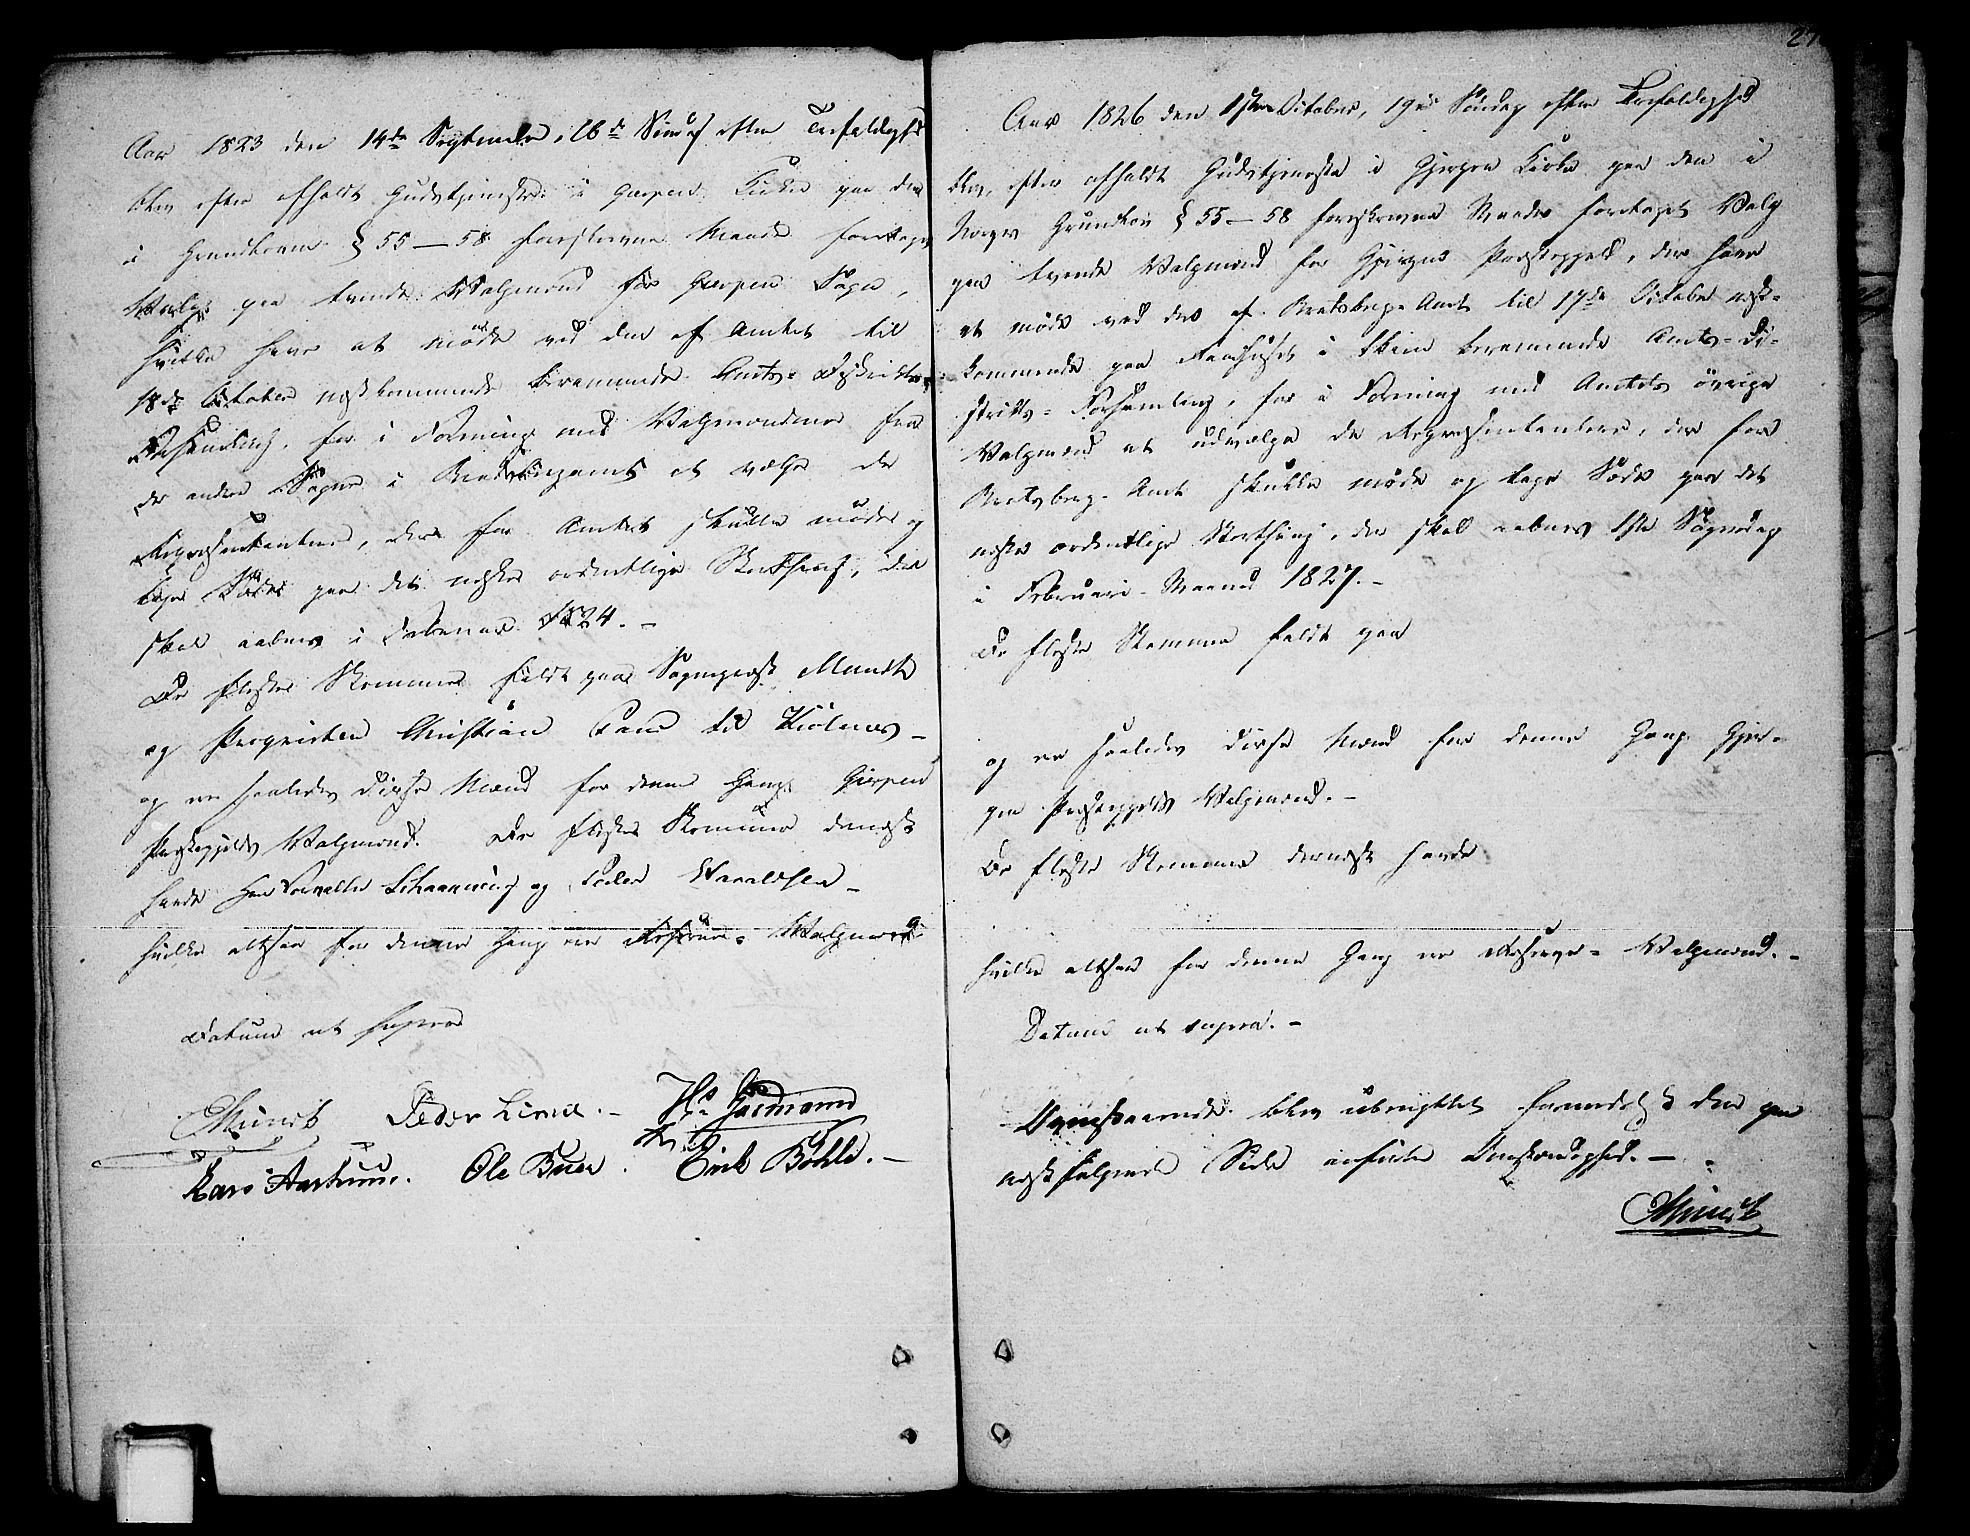 Aar 1823 den 14de September, 16de Søndag efter Trefoldighed
blev efter afholdt Gudstjeneste i Gjerpen Kirke paa den
i Grundloven § 55–58 foreskrevne Maade foretaget
Valg paa tvende Valgmænd for Gjerpen Sogn,
hvilke have at møde ved den af Amtet til
18de October næstkommende berammede Amts-Districts-
Forsamling, for i Forening med Valgmændene fra
de andre Sogne i Bratsbergamt at vælge de
Repræsentantere, der for Amtet skulle møde og
tage Sæde paa det næste ordentlige Storthing, der
skal aabnes i Februar 1824. –
De fleste Stemmer faldt paa Sognepræst Munch
og Proprietær Christian Paus til Kiølnes –
og ere saaledes disse Mænd for denne Gang Gjerpen
Præstegjelds Valgmænd. De fleste Stemmer dernæst
havde Herr Forvalter Schaanning og Peder Haraldsen –
hvilke altsaa for denne Gang ere Reserve-Valgmænd.
Datum ut supra
Munch Peder Lime. – Hs Gasmann
Lars Aarhuus. Ole Buer. Erik Bøhle. –
27
Aar 1826 den 1ste October, 19de Søndag efter Trefoldighed
blev, efter afholdt Gudstjeneste i Gjerpen Kirke paa den i
Norges Grundlov § 55–58 foreskrevne Maade foretaget Valg
paa tvende Valgmænd for Gjerpens Præstegjeld, der have
at møde ved det af Bratsberg-Amt til 17de October næst-
kommende paa Raadhuset i Skien berammede Amts-Di-
stricts-Forsamling, for i Forening med Amtets øvrige
Valgmænd at udvælge de Repræsentantere, der for
Bratsberg-Amt skulle møde og tage Sæde paa det
næste ordentlige Storthing, der skal aabnes 1ste Søgnedag
i Februari-Maaned 1827. –
De fleste Stemmer faldt paa
og ere saaledes disse Mænd for denne Gang Gjer-
pen Præstegjelds Valgmænd. –
De fleste Stemmer dernæst havde
hvilke altsaa for denne Gang ere Reserve-Valgmænd. –
Datum ut supra. –
Ovenstaaende blev ubenyttet formedelst den paa
næstfølgende Side anførte Omstændighed. –
Munch